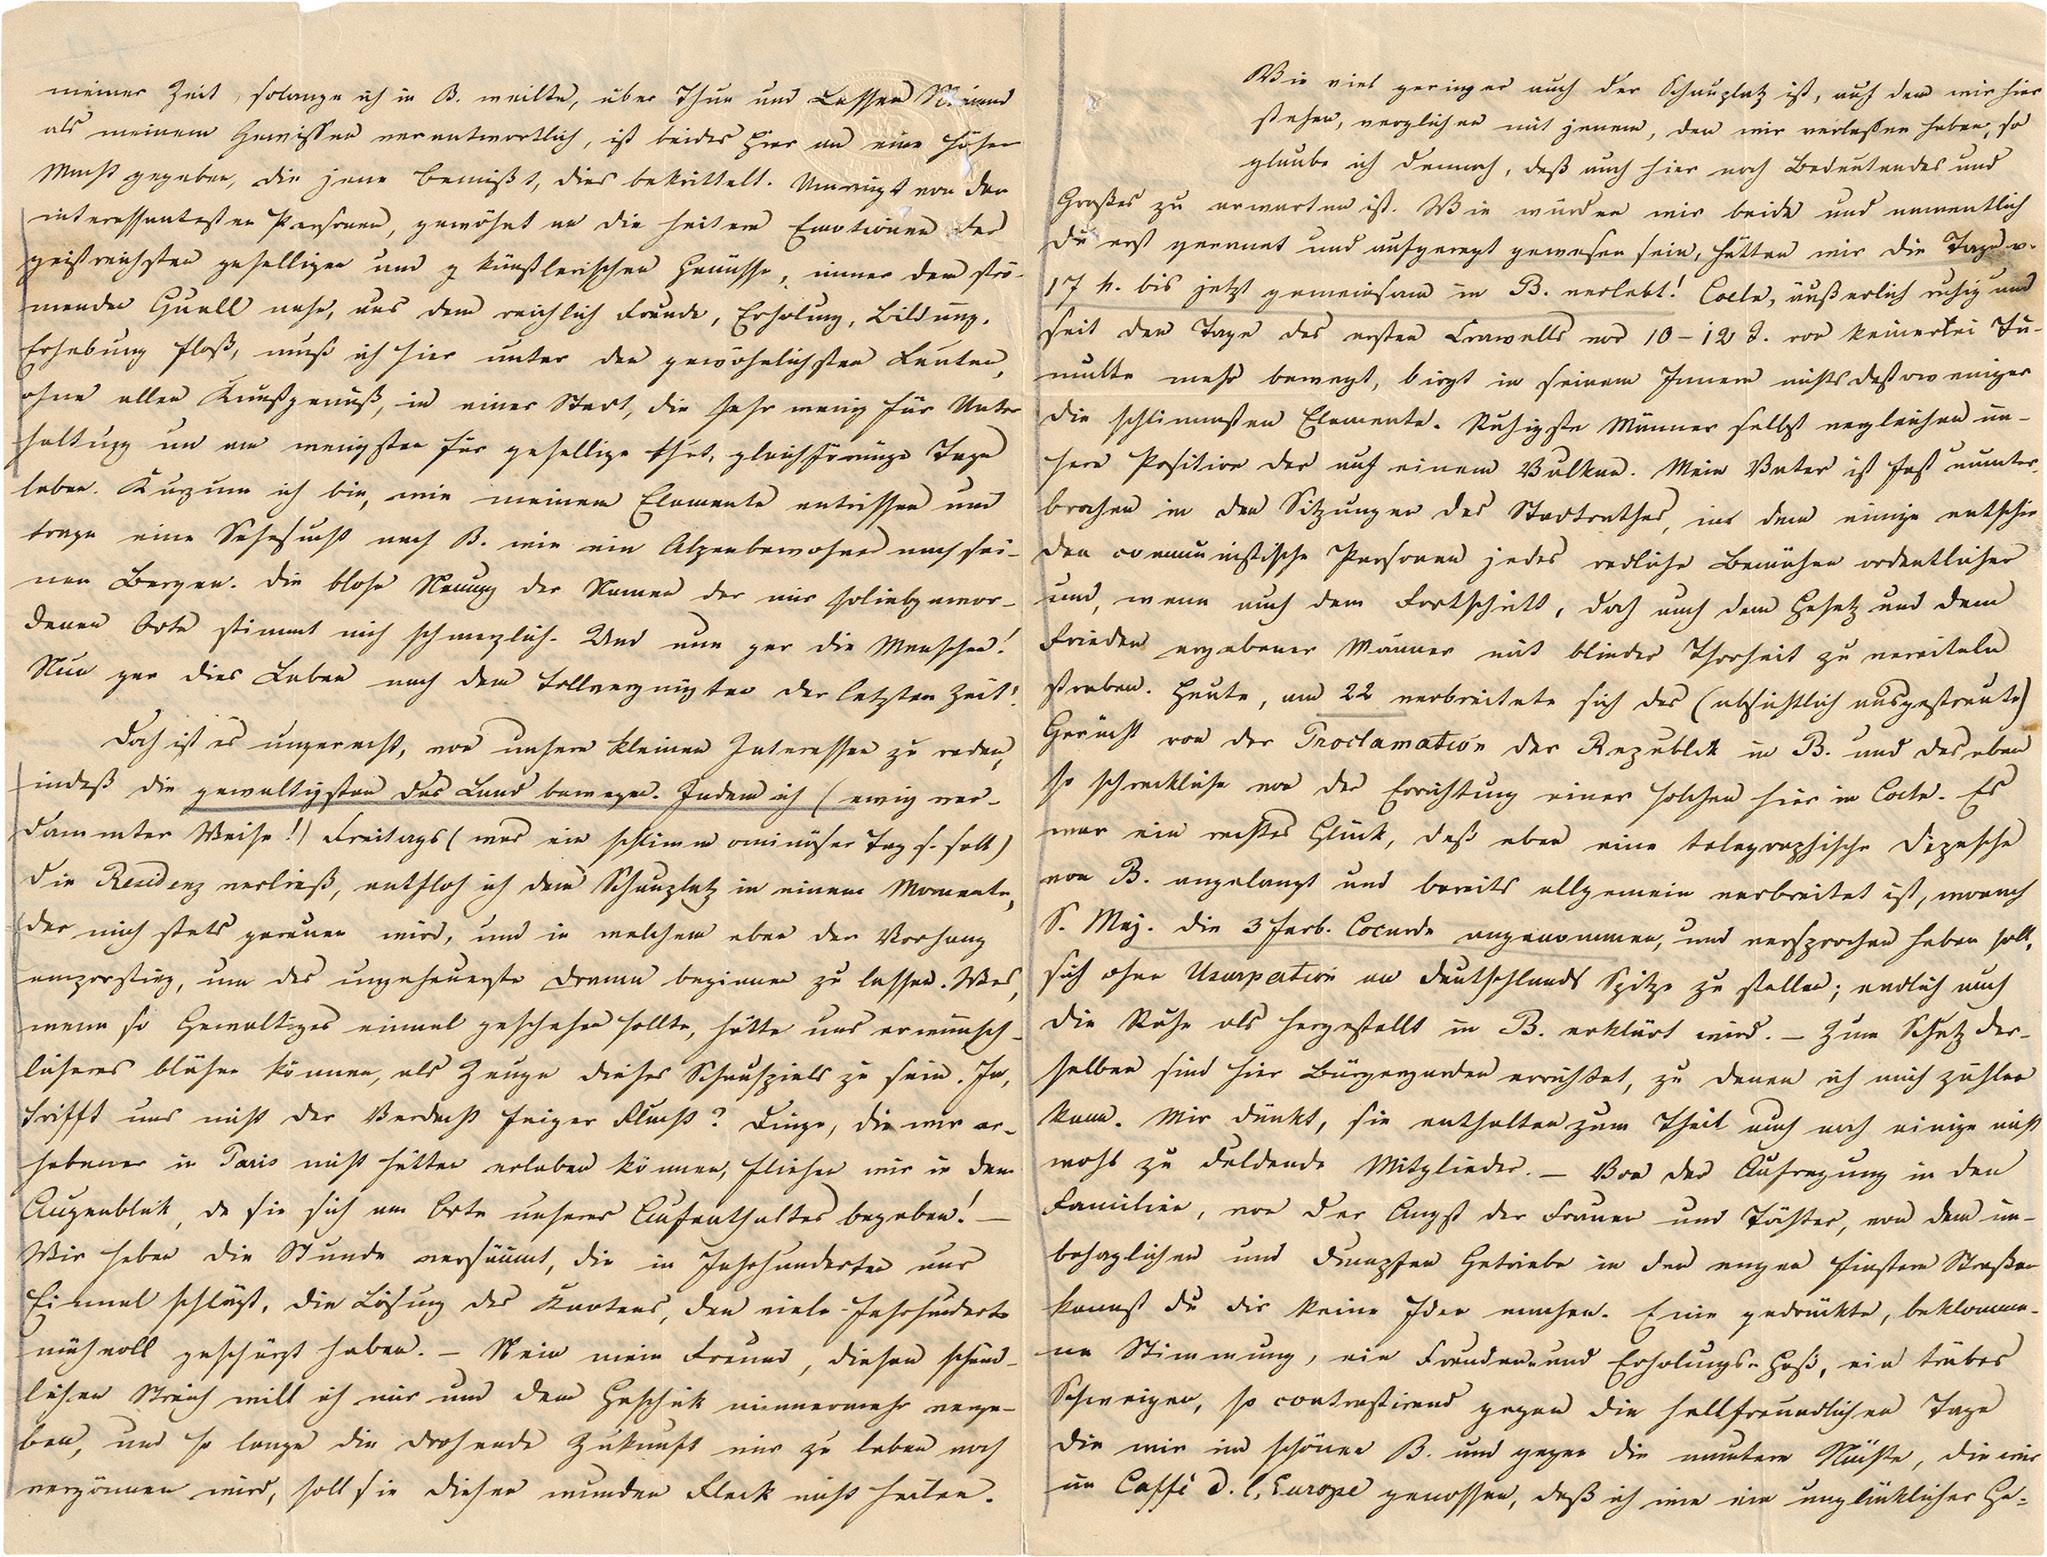 meiner Zeit, solange ich in B. weilte, über Thun und Lassen Niemand
als meinem Gewissen verantwortlich, ist beides hier an eine höhere
Macht gegeben, die jene bemißt, dies bekrittelt. Umringt von den
interessantesten Personen, gewöhnt an die heitern Emotionen der
geistreichsten geselligen und künstlerischen Genüsse, immer dem strö-
menden Quell nahe, aus dem reichlich Freude, Erholung, Bildung,
Erhebung floß, muß ich hier unter den gewöhnlichsten Leuten,
ohne allen Kunstgenuß, in einer Stadt, die sehr wenig für Unter
haltung und am wenigsten für gesellige thut, gleichförmige Tage
leben. Kurzum ich bin, wie meinem Elemente entrissen und
trage eine Sehnsucht nach B. wie ein Alpenbewohner nach sei-
nen Bergen. Die bloße Nennung der Namen der mir so liebgewor-
denen Orte stimmt mich schmerzlich. Und nun gar die Menschen!
Nun gar dies Leben nach dem tollvergnügten der letzten Zeit!
Doch ist es ungerecht, von unsern kleinen Interessen zu reden,
indeß die gewaltigsten das Land bewegen. Indem ich (ewig ver-
dammter Weise!) Freitags (was ein schlimm ominöser Tag s. soll)
die Residenz verließ, entfloh ich dem Schauplatz in einem Momente,
der mich stets gereuen wird, und in welchem eben der Vorhang
emporstieg, um das ungeheuerste Drama beginnen zu lassen. Was,
wenn so Gewaltiges einmal geschehen sollte, hätte uns erwünsch-
licheres blühen können, als Zeuge dieses Schauspiels zu sein. Ja,
trifft uns nicht der Verdacht feiger Flucht? Dinge, die wir er-
habener in Paris nicht hätten erleben können, fliehen wir in dem
Augenblick, da sie sich am Orte unseres Aufenthaltes begeben! —
Wir haben die Stunde versäumt, die in Jahrhunderten nur
Einmal schlägt, die Lösung des Knotens, den viele Jahrhunderte
mühvoll geschürzt haben. — Nein mein Freund, diesen schänd-
lichen Streich will ich mir und dem Geschick nimmermehr verge-
ben, und so lange die drohende Zukunft mir zu leben noch
vergönnen wird, soll sie diesen wunden Fleck nicht heilen.
Wie viel geringer auch der Schauplatz ist, auf dem wir hier
stehen, verglichen mit jenem, den wir verlassen haben, so
glaube ich dennoch, daß auch hier noch Bedeutendes und
Großes zu erwarten ist. Wie würden wir beide und namentlich
Du erst gerannt und aufgeregt gewesen sein, hätten wir die Tage v.
17 h. bis jetzt gemeinsam in B. verlebt! Coeln, äußerlich ruhig und
seit dem Tage des ersten Crawalls vor 10–12 T. von keinerlei Tu-
multe mehr bewegt, birgt in seinem Innern nichts destoweniger
die schlimmsten Elemente. Ruhigste Männer selbst vergleichen un-
sere Position der auf einem Vulkan. Mein Vater ist fast ununter-
brochen in den Sitzungen des Stadtrathes, in dem einige entschie
den communistische Personen jedes redliche Bemühen ordentlicher
und, wenn auch dem Fortschritt, doch auch dem Gesetz und dem
Frieden ergebener Männer mit blinder Thorheit zu vereiteln
streben. Heute, am 22 verbreitete sich das (absichtlich ausgestreute)
Gerücht von der Proclamation der Republik in B. und das eben
so schreckliche von der Errichtung einer solchen hier in Coeln. Es
war ein rechtes Glück, daß eben eine telegraphische Depesche
von B. angelangt und bereits allgemein verbreitet ist, wonach
S. Maj. die 3 farb. Cocarde angenommen, und versprochen haben soll,
sich ohne Usurpation an Deutschlands Spitze zu stellen; endlich auch
die Ruhe als hergestellt in B. erklärt wird. — Zum Schutz der-
selben sind hier Bürgergarden errichtet, zu denen ich mich zählen
kann. Mir dünkt, sie enthalten zum Theil auch noch einige nicht
wohl zu duldende Mitglieder. — Von der Aufregung in den
Familien, von der Angst der Frauen und Töchter, von dem un-
behaglichen und dumpfen Getriebe in den engen finstern Straßen
kannst du dir keine Idee machen. Eine gedrückte, beklomme-
ne Stimmung, ein Freuden- und Erholungs-Haß, ein trübes
Schweigen, so contrastirend gegen die hellfreundlichen Tage
die wir im schönen B. und gegen die muntern Nächte, die wir
im Caffé d. l. Europe genossen, daß ich wie ein unglücklicher Ge-